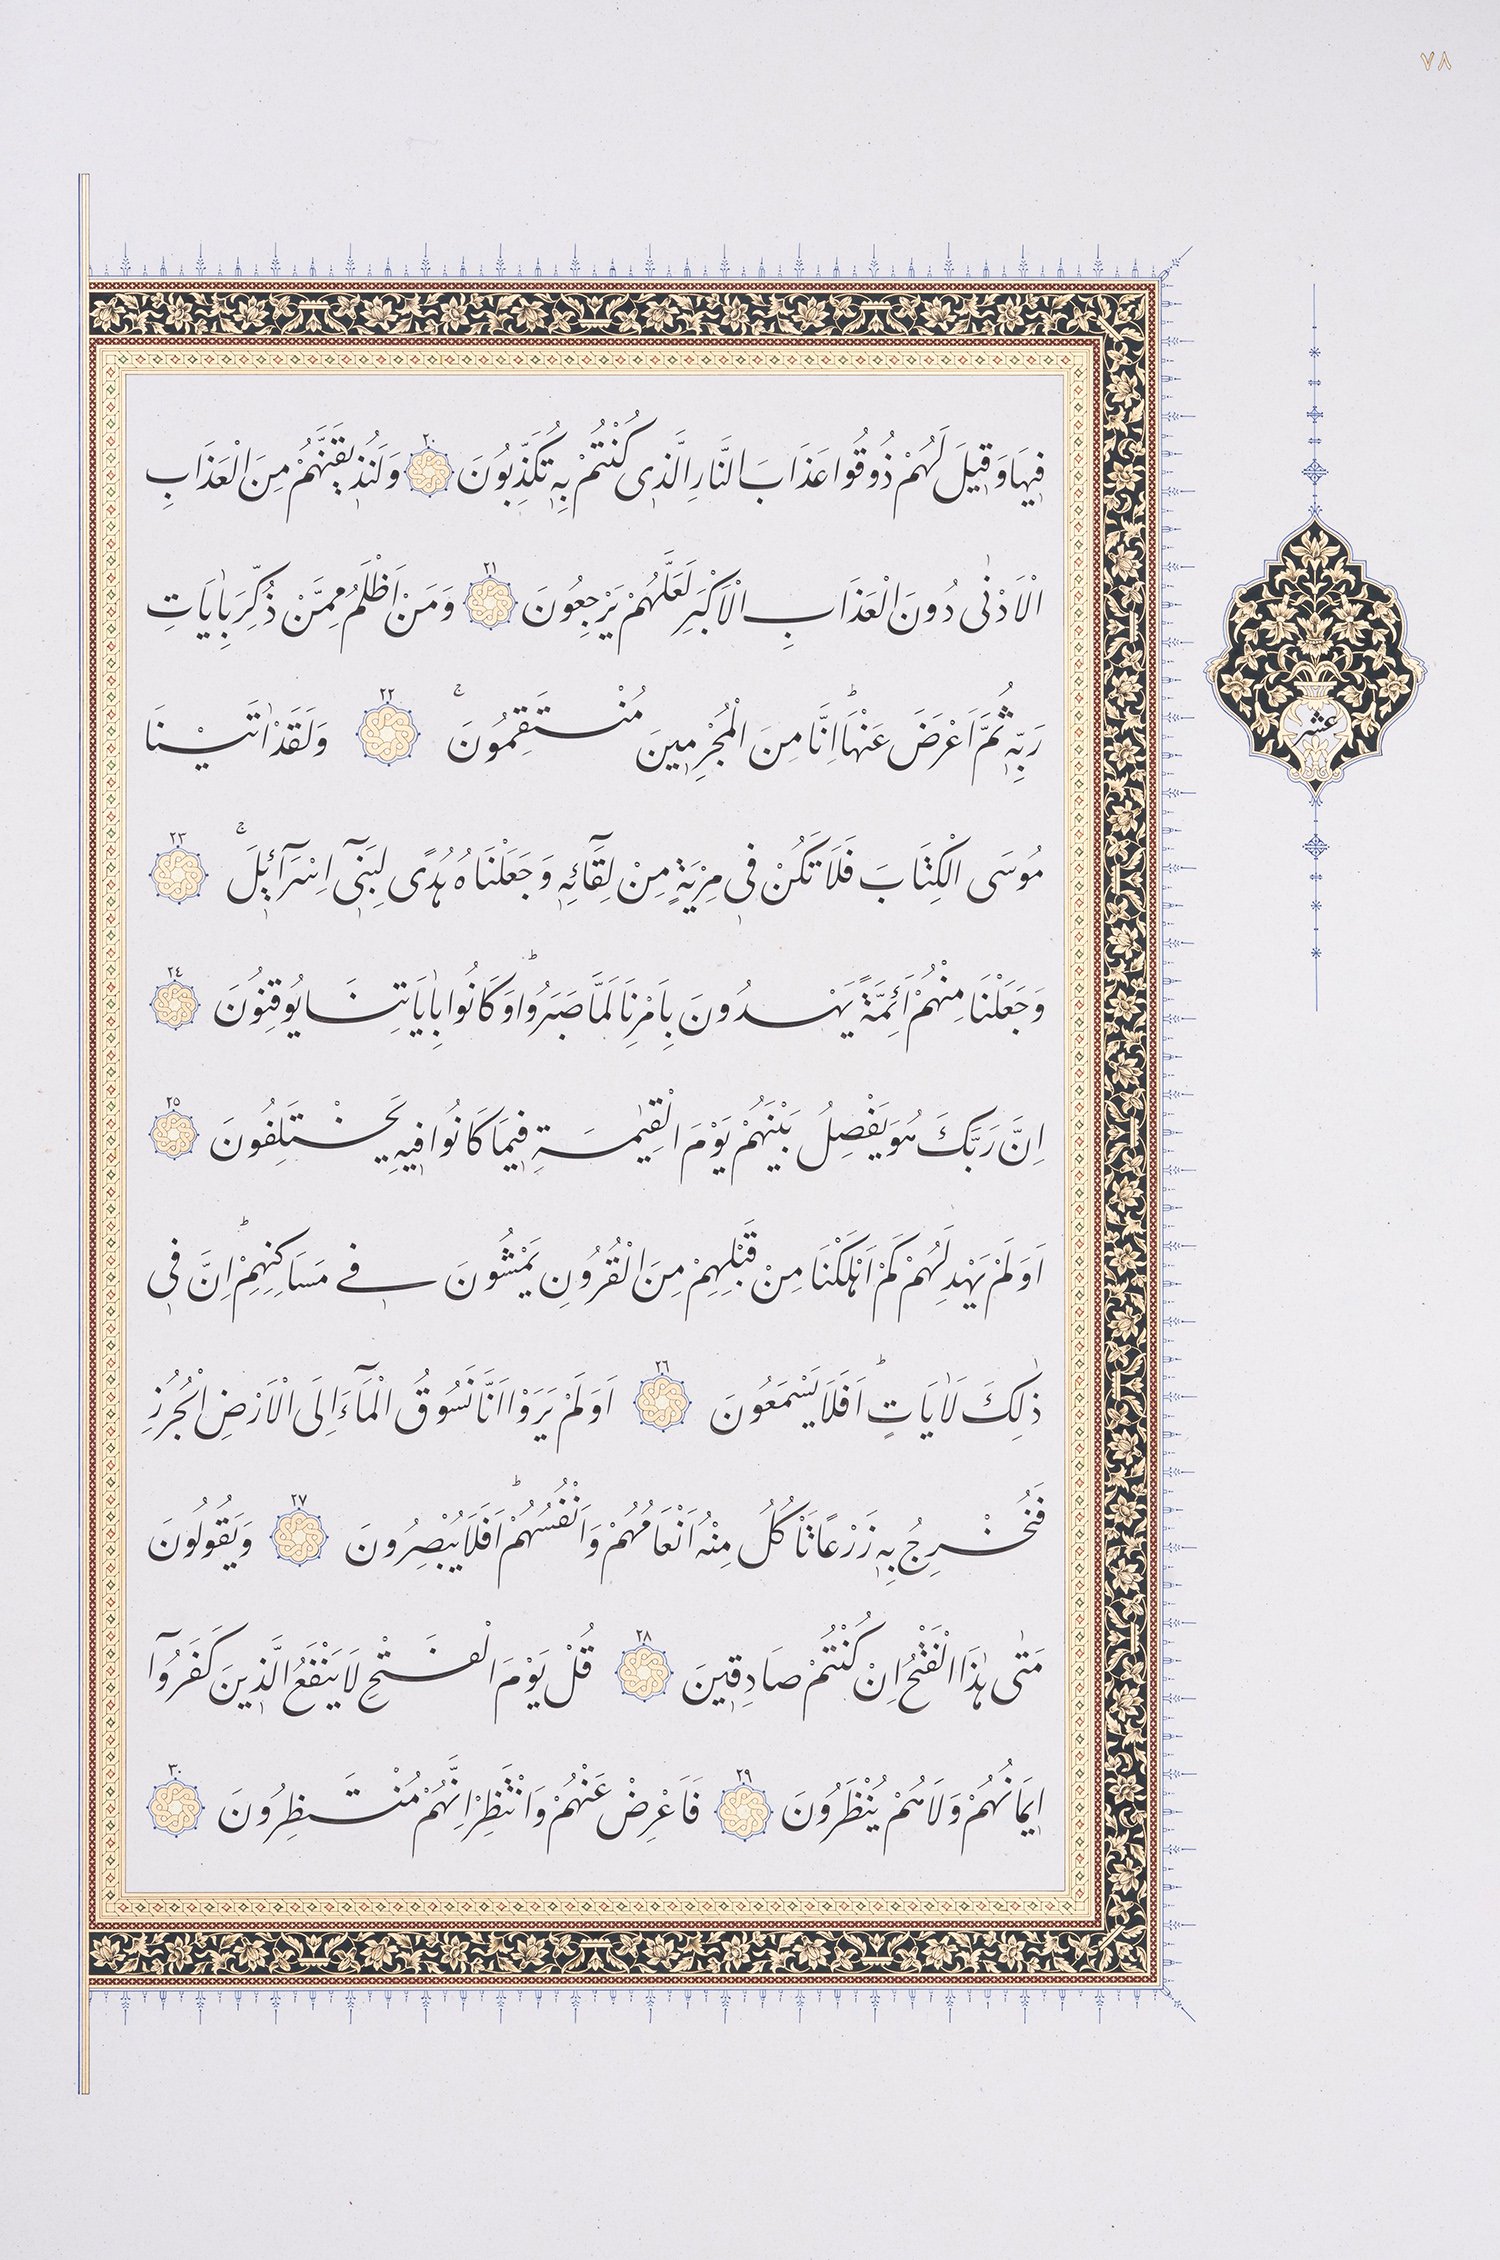 ٧٨
فِيهَا وَقِيلَ لَهُمْ ذُوقُوا عَذَابَ النَّارِ الَّذِى كُنْتُمْ بِهِ تُكَذِّبُونَ ٢٠ وَلَنُذِيقَنَّهُمْ مِنَ الْعَذَابِ
الْاَدْنٰى دُونَ الْعَذَابِ الْاَكْبَرِ لَعَلَّهُمْ يَرْجِعُونَ ٢١ وَمَنْ اَظْلَمُ مِمَّنْ ذُكِّرَ بِاٰيَاتِ
رَبِّهِ ثُمَّ اَعْرَضَ عَنْهَاۜ اِنَّا مِنَ الْمُجْرِمِينَ مُنْتَقِمُونَ ۚ ٢٢ وَلَقَدْ اٰتَيْنَا
مُوسَى الْكِتَابَ فَلَا تَكُنْ فِى مِرْيَةٍ مِنْ لِقَٓائِهِ وَجَعَلْنَاهُ هُدًى لِبَنِٓى اِسْرَٓائِلَ ۚ ٢٣
وَجَعَلْنَا مِنْهُمْ اَئِمَّةً يَهْدُونَ بِاَمْرِنَا لَمَّا صَبَرُواۜ وَكَانُوا بِاٰيَاتِنَا يُوقِنُونَ ٢٤
اِنَّ رَبَّكَ هُوَ يَفْصِلُ بَيْنَهُمْ يَوْمَ الْقِيٰمَةِ فِيمَا كَانُوا فِيهِ يَخْتَلِفُونَ ٢٥
اَوَلَمْ يَهْدِ لَهُمْ كَمْ اَهْلَكْنَا مِنْ قَبْلِهِمْ مِنَ الْقُرُونِ يَمْشُونَ فِى مَسَاكِنِهِمْۜ اِنَّ فِى
ذٰلِكَ لَاٰيَاتٍۜ اَفَلَا يَسْمَعُونَ ٢٦ اَوَلَمْ يَرَوْا اَنَّا نَسُوقُ الْمَٓاءَ اِلَى الْاَرْضِ الْجُرُزِ
فَنُخْرِجُ بِهِ زَرْعًا تَاْكُلُ مِنْهُ اَنْعَامُهُمْ وَاَنْفُسُهُمْۜ اَفَلَا يُبْصِرُونَ ٢٧ وَيَقُولُونَ
مَتٰى هٰذَا الْفَتْحُ اِنْ كُنْتُمْ صَادِقِينَ ٢٨ قُلْ يَوْمَ الْفَتْحِ لَا يَنْفَعُ الَّذِينَ كَفَرُٓوا
اِيمَانُهُمْ وَلَا هُمْ يُنْظَرُونَ ٢٩ فَاَعْرِضْ عَنْهُمْ وَانْتَظِرْ اِنَّهُمْ مُنْتَظِرُونَ ٣٠
عشر